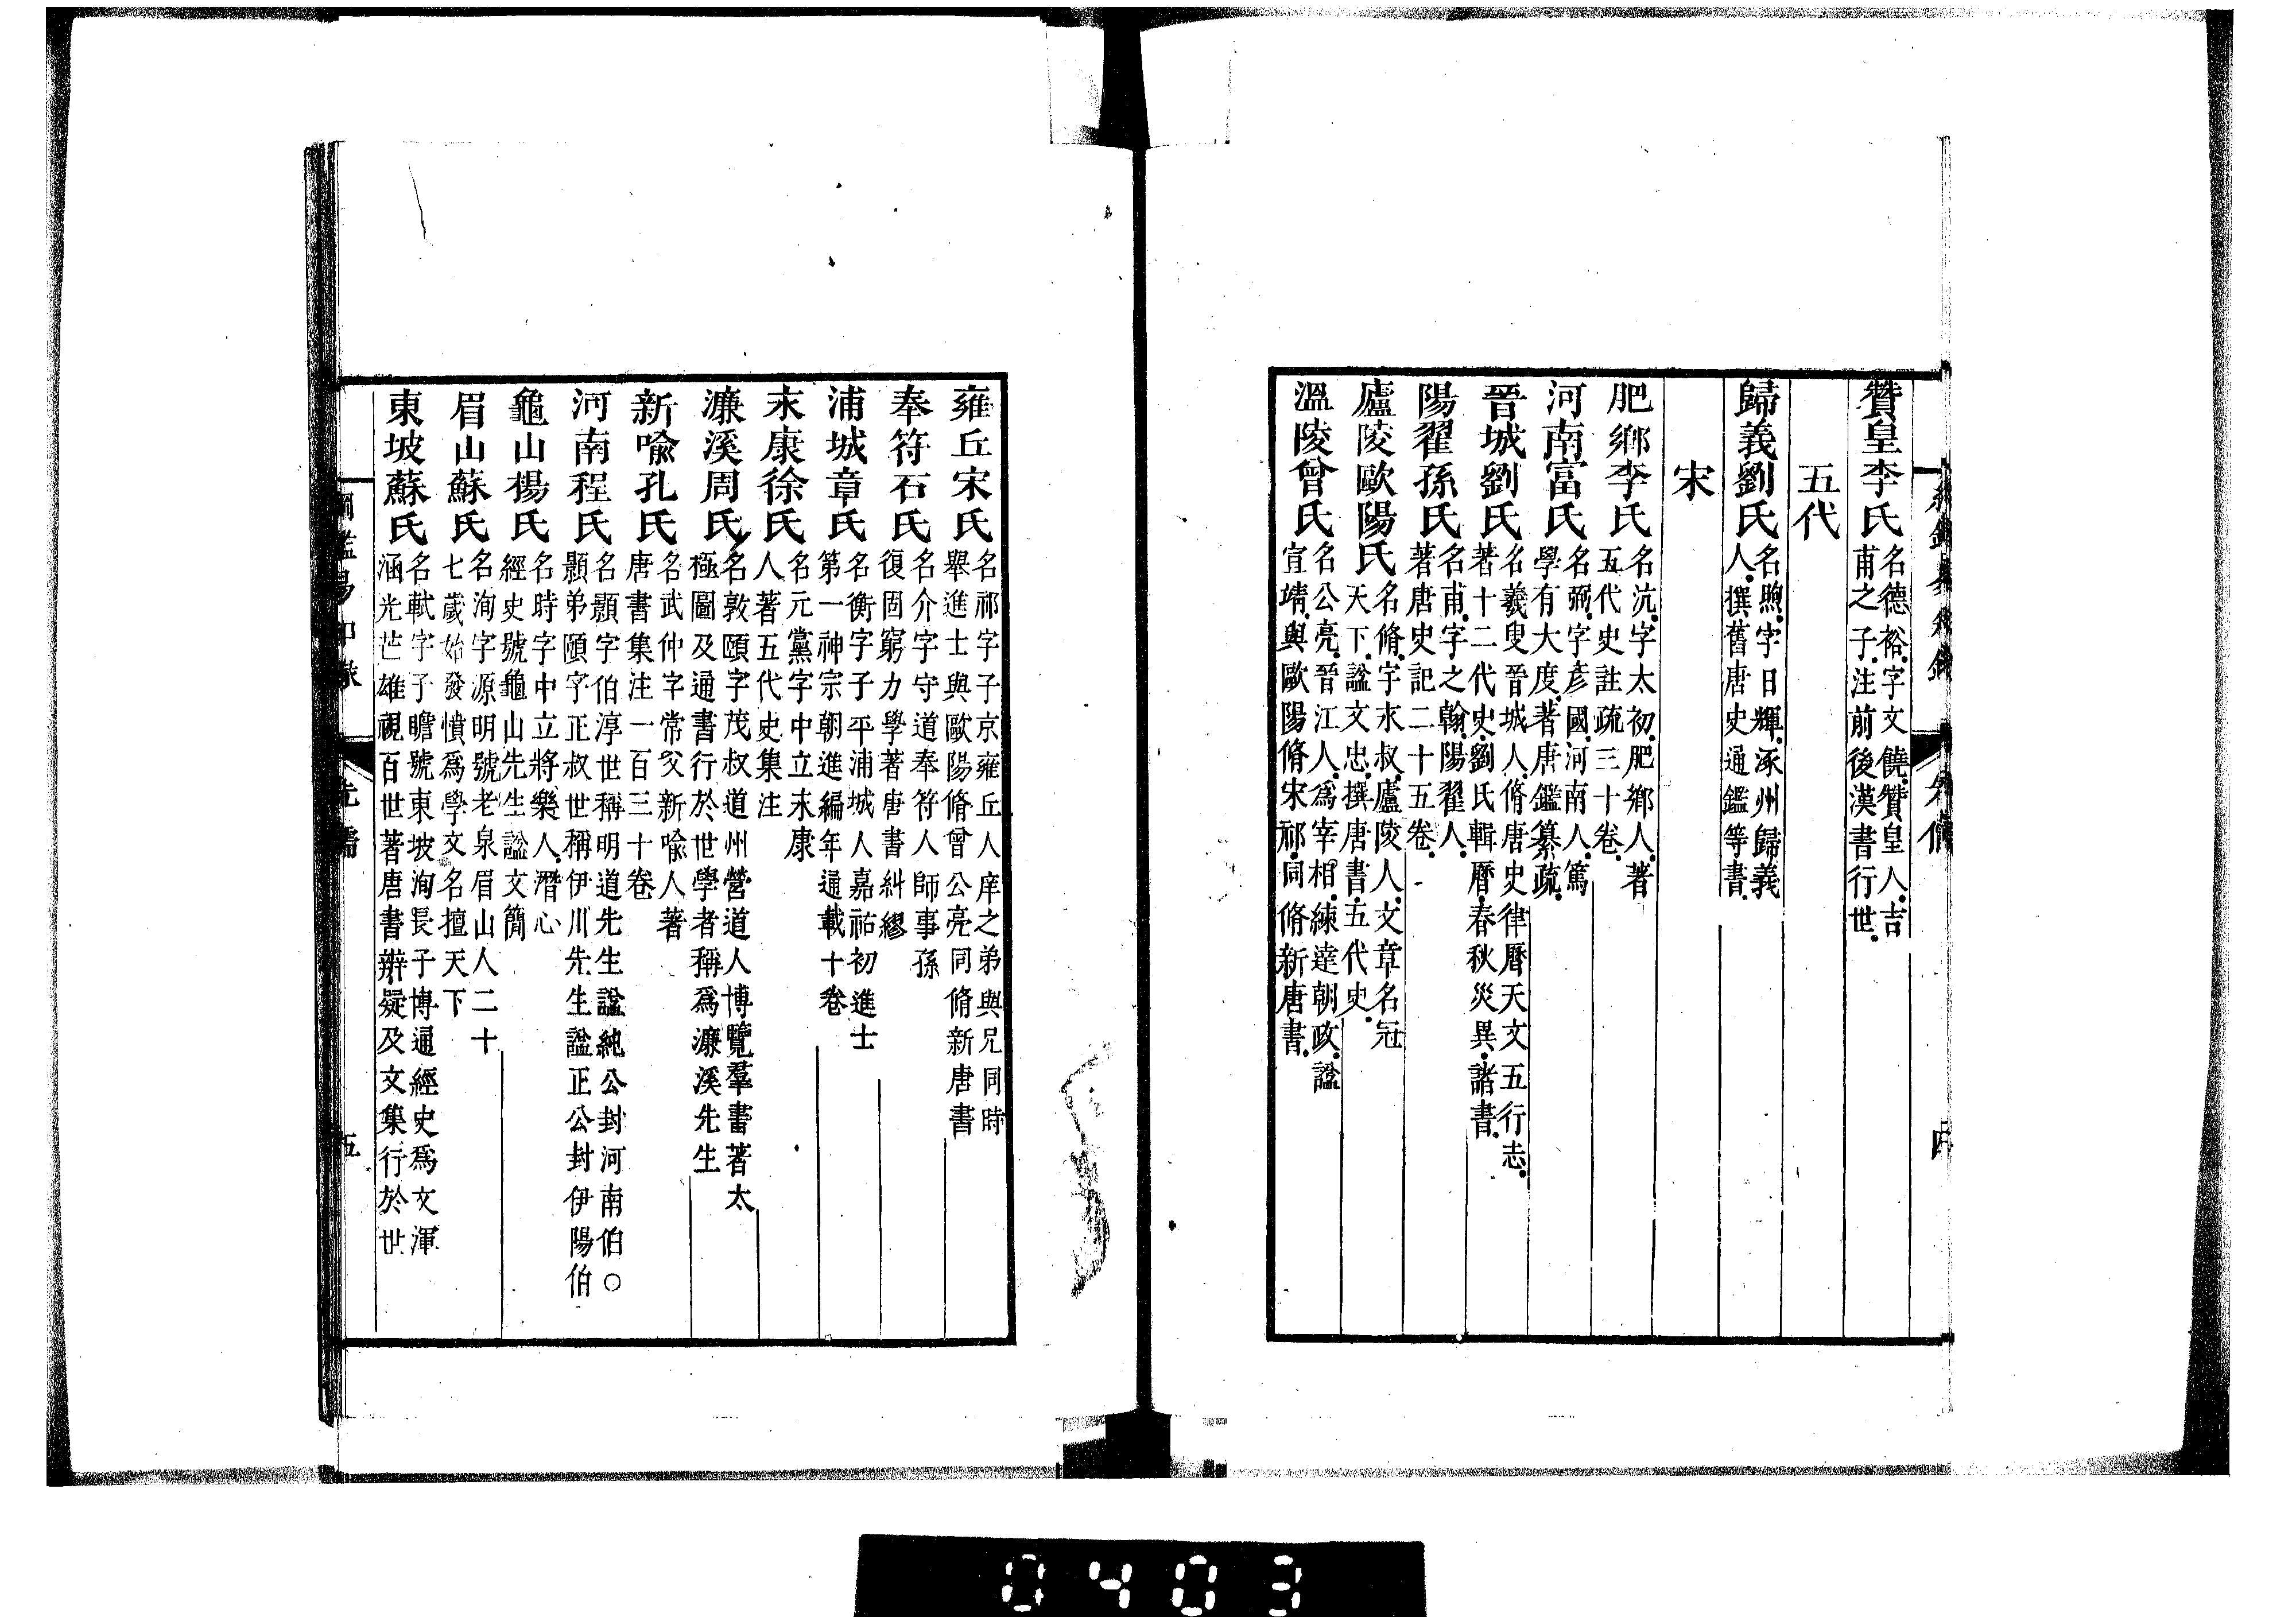 贊皇李氏 名德裕字文饒贊皇人吉
甫之子注前後漢書行世
五代
歸義劉氏 名煦字日輝涿州歸義
人撰舊唐史通鑑等書
宋
肥鄉李氏 名沆字太初肥鄉人著
五代史註疏三十卷
河南富氏 名弼字彥國河南人篤
學有大度著唐鑑纂疏
晉城劉氏 名羲叟晉城人脩唐史律曆天文五行志
著十二代史劉氏輯曆春秋災異諸書
陽翟孫氏 名甫字之翰陽翟人
著唐史記二十五卷
廬陵歐陽氏 名脩字永叔廬陵人文章名冠
天下諡文忠撰唐書五代史
溫陵曾氏 名公亮晉江人爲宰相練達朝政諡
宣靖與歐陽脩宋祁同脩新唐書
雍丘宋氏 名祁字子京雍丘人庠之弟與兄同時
舉進士與歐陽脩曾公亮同脩新唐書
奉符石氏 名介字守道奉符人師事孫
復固窮力學著唐書糾繆
浦城章氏 名衡字子平浦城人嘉祐初進士
第一神宗朝進編年通載十卷
永康徐氏 名元黨字中立永康
人著五代史集注
濂溪周氏 名敦頤字茂叔道州營道人博覽羣書著太
極圖及通書行於世學者稱爲濂溪先生
新喻孔氏 名武仲字常父新喻人著
唐書集注一百三十卷
河南程氏 名顥字伯淳世稱明道先生諡純公封河南伯○
顥弟頤字正叔世稱伊川先生諡正公封伊陽伯
龜山楊氏 名時字中立將樂人潛心
經史號龜山先生諡文簡
眉山蘇氏 名洵字源明號老泉眉山人二十
七歲始發憤爲學文名擅天下
東坡蘇氏 名軾字子瞻號東坡洵長子博通經史爲文渾
涵光芒雄視百世著唐書辨疑及文集行於世
綱鑑易知錄
先儒
五
0403